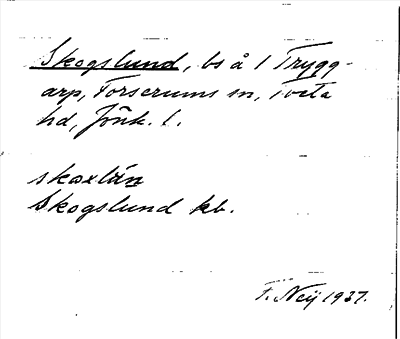 Skogslund, bs å 1 Trygg-
arp, Forserums sn, Tveta
hd, Jönk. l.
Skogslund kb.
F. Neij 1937.